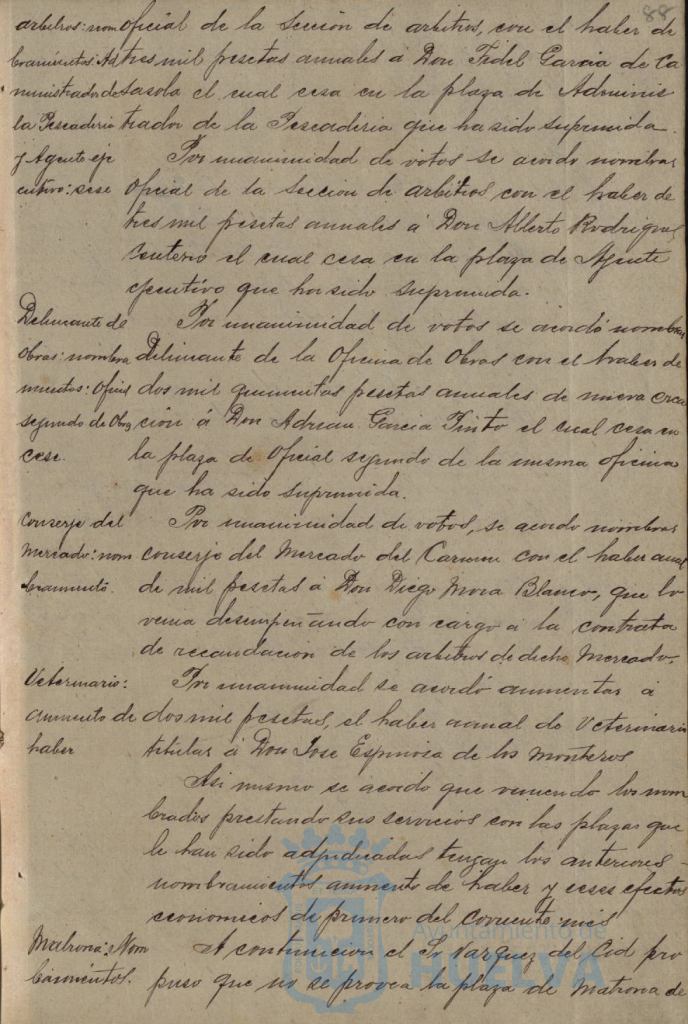 88
arbitros: nom oficial de la Sección de arbitros, con el haber de
bramientos: Ad tres mil pesetas anuales á Don Fidel Garcia de Ca
ministrador de sasola el cual cesa en la plaza de Adminis
la Pescaderia trador de la Pescaderia que ha sido suprimida.
y Agente eje Por unanimidad de votos se acordo nombrar
cutivo: cese Oficial de la Seccion de arbitros con el haber de
tres mil pesetas anuales á Don Alberto Rodriguez
Centeno el cual cesa en la plaza de Agente
ejecutivo que ha sido suprimida.
Delineante de Por unanimidad de votos se acordó nombrar
Obras: nombra Delineante de la Oficina de Obras con el haber de
mientos: Oficial dos mil quinientas pesetas anuales de nueva crea
segundo de Obras ción á Don Adrian Garcia Pinto el cual cesa en
cese. la plaza de Oficial segundo de la misma oficina
que ha sido suprimida.
Conserje del Por unanimidad de votos, se acordo nombrar
Mercado: nom conserje del Mercado del Carmen con el haber anual
bramiento. de mil pesetas á Don Diego Mora Blanco, que lo
venia desempeñando con cargo á la contrata
de recaudacion de los arbitros de dicho Mercado.
Veterinario: Por unanimidad se acordó aumentar á
aumento de dos mil pesetas, el haber anual de Veterinario
haber titular á Don Jose Espinosa de los Monteros
Asi mismo se acordo que viniendo los nom
brados prestando sus servicios con las plazas que
le han sido adjudicadas tengan los anteriores
nombramientos aumento de haber y ceses efectos
economicos de primero del corriente mes
Matrona: Nom A continucion el Sr Vazquez del Cid pro
bramientos. puso que no se provea la plaza de Matrona de
Ayuntamiento de
HUELVA